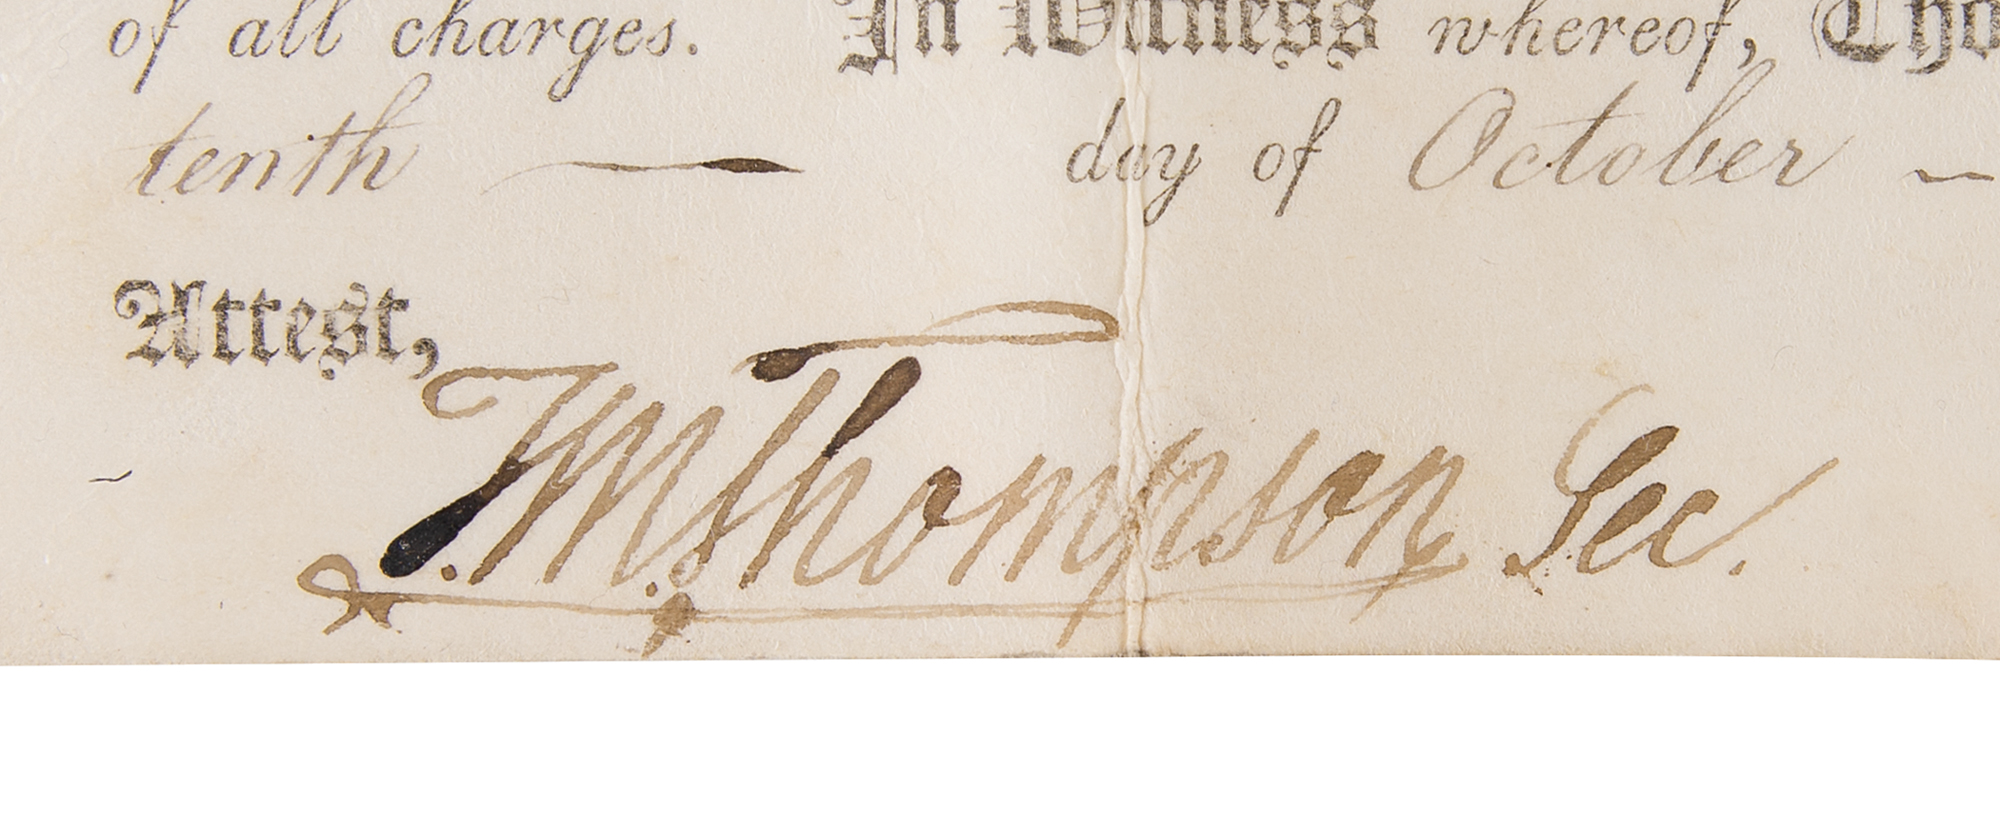 of all charges. In Witness whereof, Tho
tenth — day of October —
Attest,
T.M. Thompson Sec.